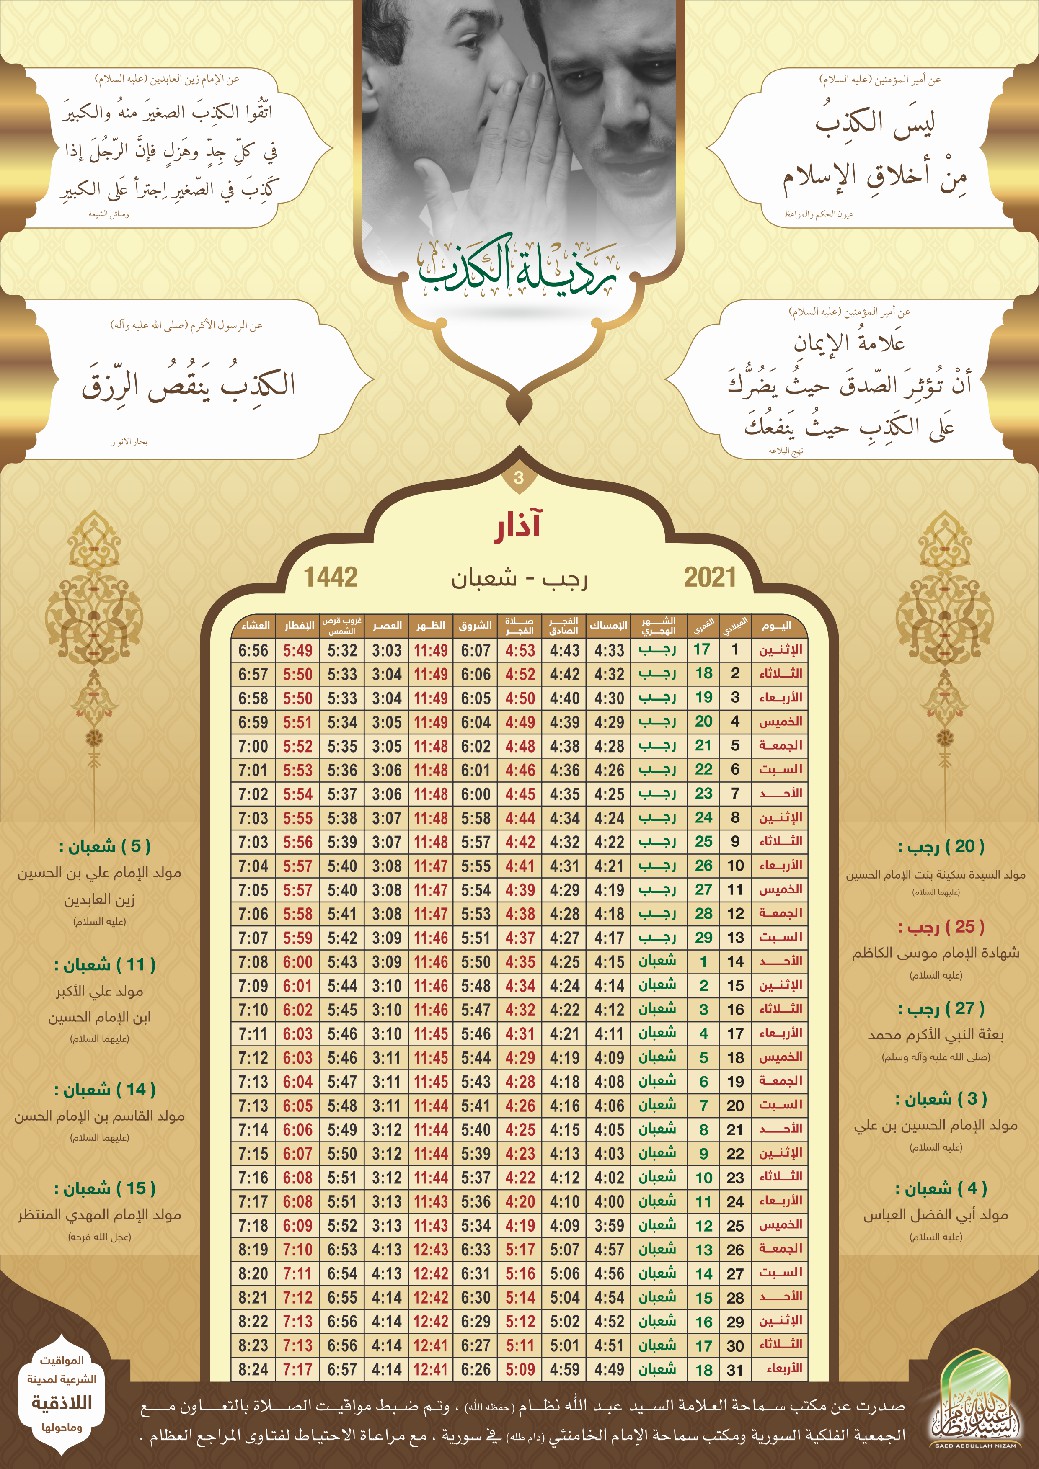 عن أمير المؤمنين (عليه السلام)
ليسَ الكذِبُ
مِنْ أخلاقِ الإسلام
عيون الحكم والمواعظ
عن الإمام زين العابدين (عليه السلام)
اتّقُوا الكذِبَ الصغيرَ منهُ والكبيرَ
في كلِّ جِدٍّ وهَزلٍ فإنَّ الرّجُلَ إذا
كَذِبَ في الصّغيرِ اِجترأ عَلى الكبيرِ
وسائل الشيعة
رذيلة الكذب
عن أمير المؤمنين (عليه السلام)
عَلامةُ الإيمانِ
أنْ تُؤثِرَ الصّدقَ حيثُ يَضُرُّكَ
عَلى الكَذِبِ حيثُ يَنفعُكَ
نهج البلاغة
عن الرسول الأكرم (صلى الله عليه وآله)
الكذِبُ يَنقُصُ الرِّزقَ
بحار الأنوار
3
آذار
2021 رجب - شعبان 1442
اليوم الميلادي القمري الشهر الهجري الإمساك الفجر الصادق صلاة الفجر الشروق الظهر العصر غروب قرص الشمس الإفطار العشاء
الإثنين 1 17 رجب 4:33 4:43 4:53 6:07 11:49 3:03 5:32 5:49 6:56
الثلاثاء 2 18 رجب 4:32 4:42 4:52 6:06 11:49 3:04 5:33 5:50 6:57
الأربعاء 3 19 رجب 4:30 4:40 4:50 6:05 11:49 3:04 5:33 5:50 6:58
الخميس 4 20 رجب 4:29 4:39 4:49 6:04 11:49 3:05 5:34 5:51 6:59
الجمعة 5 21 رجب 4:28 4:38 4:48 6:02 11:48 3:05 5:35 5:52 7:00
السبت 6 22 رجب 4:26 4:36 4:46 6:01 11:48 3:06 5:36 5:53 7:01
الأحد 7 23 رجب 4:25 4:35 4:45 6:00 11:48 3:06 5:37 5:54 7:02
الإثنين 8 24 رجب 4:24 4:34 4:44 5:58 11:48 3:07 5:38 5:55 7:03
الثلاثاء 9 25 رجب 4:22 4:32 4:42 5:57 11:48 3:07 5:39 5:56 7:03
الأربعاء 10 26 رجب 4:21 4:31 4:41 5:55 11:47 3:08 5:40 5:57 7:04
الخميس 11 27 رجب 4:19 4:29 4:39 5:54 11:47 3:08 5:40 5:57 7:05
الجمعة 12 28 رجب 4:18 4:28 4:38 5:53 11:47 3:08 5:41 5:58 7:06
السبت 13 29 رجب 4:17 4:27 4:37 5:51 11:46 3:09 5:42 5:59 7:07
الأحد 14 1 شعبان 4:15 4:25 4:35 5:50 11:46 3:09 5:43 6:00 7:08
الإثنين 15 2 شعبان 4:14 4:24 4:34 5:48 11:46 3:10 5:44 6:01 7:09
الثلاثاء 16 3 شعبان 4:12 4:22 4:32 5:47 11:46 3:10 5:45 6:02 7:10
الأربعاء 17 4 شعبان 4:11 4:21 4:31 5:46 11:45 3:10 5:46 6:03 7:11
الخميس 18 5 شعبان 4:09 4:19 4:29 5:44 11:45 3:11 5:46 6:03 7:12
الجمعة 19 6 شعبان 4:08 4:18 4:28 5:43 11:45 3:11 5:47 6:04 7:13
السبت 20 7 شعبان 4:06 4:16 4:26 5:41 11:44 3:11 5:48 6:05 7:13
الأحد 21 8 شعبان 4:05 4:15 4:25 5:40 11:44 3:12 5:49 6:06 7:14
الإثنين 22 9 شعبان 4:03 4:13 4:23 5:39 11:44 3:12 5:50 6:07 7:15
الثلاثاء 23 10 شعبان 4:02 4:12 4:22 5:37 11:44 3:12 5:51 6:08 7:16
الأربعاء 24 11 شعبان 4:00 4:10 4:20 5:36 11:43 3:13 5:51 6:08 7:17
الخميس 25 12 شعبان 3:59 4:09 4:19 5:34 11:43 3:13 5:52 6:09 7:18
الجمعة 26 13 شعبان 4:57 5:07 5:17 6:33 12:43 4:13 6:53 7:10 8:19
السبت 27 14 شعبان 4:56 5:06 5:16 6:31 12:42 4:13 6:54 7:11 8:20
الأحد 28 15 شعبان 4:54 5:04 5:14 6:30 12:42 4:14 6:55 7:12 8:21
الإثنين 29 16 شعبان 4:52 5:02 5:12 6:29 12:42 4:14 6:56 7:13 8:22
الثلاثاء 30 17 شعبان 4:51 5:01 5:11 6:27 12:41 4:14 6:56 7:13 8:23
الأربعاء 31 18 شعبان 4:49 4:59 5:09 6:26 12:41 4:14 6:57 7:17 8:24
( 20 ) رجب :
مولد السيدة سكينة بنت الإمام الحسين
(عليهما السلام)
( 25 ) رجب :
شهادة الإمام موسى الكاظم
(عليه السلام)
( 27 ) رجب :
بعثة النبي الأكرم محمد
(صلى الله عليه وآله وسلم)
( 3 ) شعبان :
مولد الإمام الحسين بن علي
(عليه السلام)
( 4 ) شعبان :
مولد أبي الفضل العباس
(عليه السلام)
( 5 ) شعبان :
مولد الإمام علي بن الحسين
زين العابدين
(عليه السلام)
( 11 ) شعبان :
مولد علي الأكبر
ابن الإمام الحسين
(عليهما السلام)
( 14 ) شعبان :
مولد القاسم بن الإمام الحسن
(عليهما السلام)
( 15 ) شعبان :
مولد الإمام المهدي المنتظر
(عجل الله فرجه)
المواقيت
الشرعية لمدينة
اللاذقية
وماحولها
صدرت عن مكتب سماحة العلامة السيد عبد الله نظام (حفظه الله) ، وتم ضبط مواقيت الصلاة بالتعاون مع
الجمعية الفلكية السورية ومكتب سماحة الإمام الخامنئي (دام ظله) في سورية ، مع مراعاة الاحتياط لفتاوى المراجع العظام .
السيد عبد الله نظام
SAED ABDULLAH NIZAM